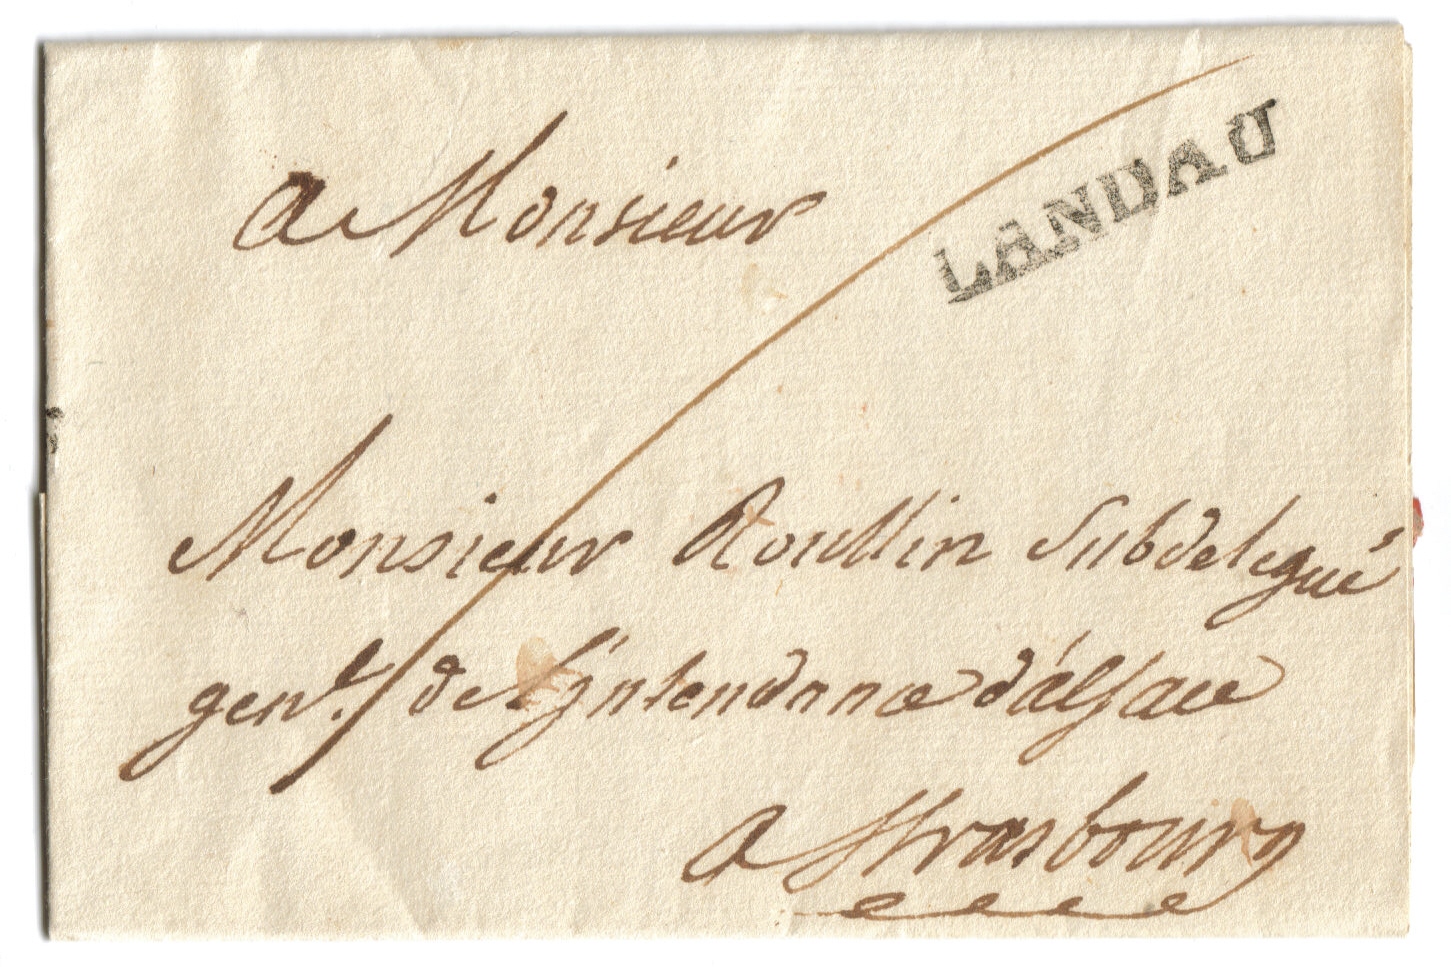 a Monsieur
LANDAU
Monsieur Roullin Subdelegué
gen.l de L'jntendance d'alsace
a Strasbourg